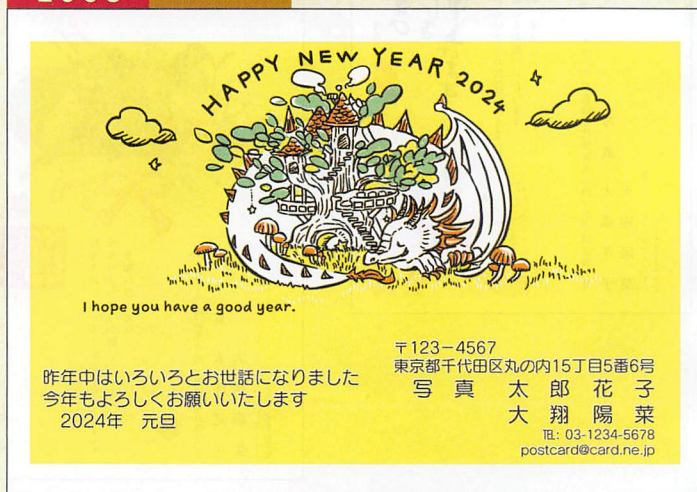 HAPPY NEW YEAR 2024
I hope you have a good year.
昨年中はいろいろとお世話になりました
今年もよろしくお願いいたします
2024年 元旦
〒123-4567
東京都千代田区丸の内15丁目5番6号
写真 太郎花子
大翔陽菜
℡: 03-1234-5678
postcard@card.ne.jp